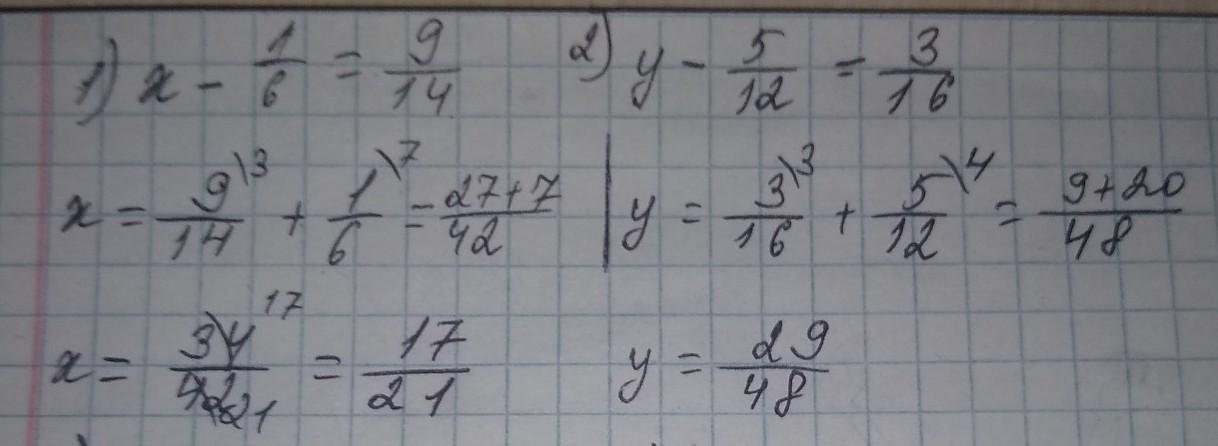 1) x - 1/6 = 9/14
x = 9\3/14 + 1\7/6 = 27+7/42
x = 34 17/42 21 = 17/21
2) y - 5/12 = 3/16
y = 3\3/16 + 5\4/12 = 9+20/48
y = 29/48